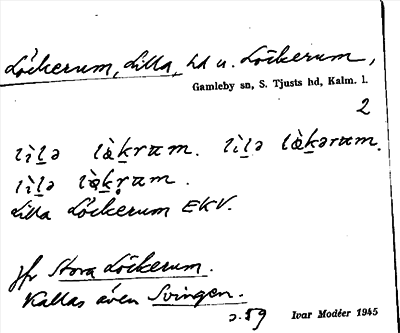 Löckerum, Lilla, hd u. Löckerum,
Gamleby sn, S. Tjusts hd, Kalm. l.
2
lìlə lə̀krum. lìlə lə̀kərum.
lìlə lə̀kr̥um.
Lilla Löckerum EKV.
Jfr Stora Löckerum.
Kallas även Svingen.
s. 59 Ivar Modéer 1945